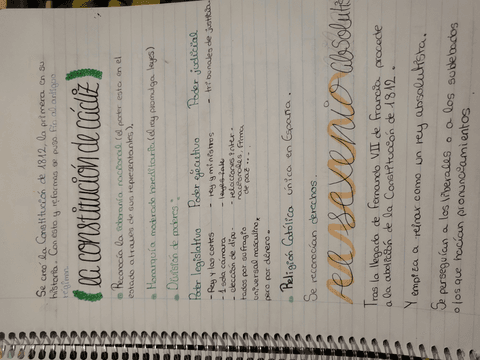 Se crea la Constitución de 1812, la primera en su
historia. Con esto y reformas se puso fin al antiguo
régimen.
La constitución de Cádiz
Reconocía la soberanía nacional (el poder está en el
estado a través de sus representantes).
Monarquía moderada hereditaria (el rey promulga leyes)
División de poderes.
Poder legislativo Poder ejecutivo Poder judicial
- Rey y las cortes
- 1 sola cámara
- elección de dipu-
tados por sufragio
universal masculino,
pero por género.
- rey y ministros
- relaciones inter-
nacionales. Firma
de paz...
- tribunales de justicia
Religión Católica única en España.
Se reconocían derechos.
sexenio absolutista
Tras la llegada de Fernando VII de Francia procede
a la abolición de la Constitución de 1812.
Y empieza a reinar como un rey absolutista.
Se perseguían a los liberales o a los sublevados
o los que hacían pronunciamientos